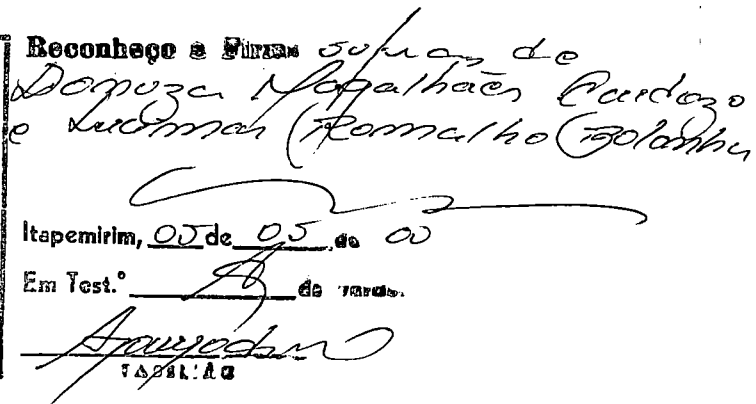 Reconheço a Firma supra de
Donuza Magalhães Cardozo
e Lucimar Romalho Bolanho
Itapemirim, 05 de 05 de 00
Em Test.º de verdade.
TABELIÃO